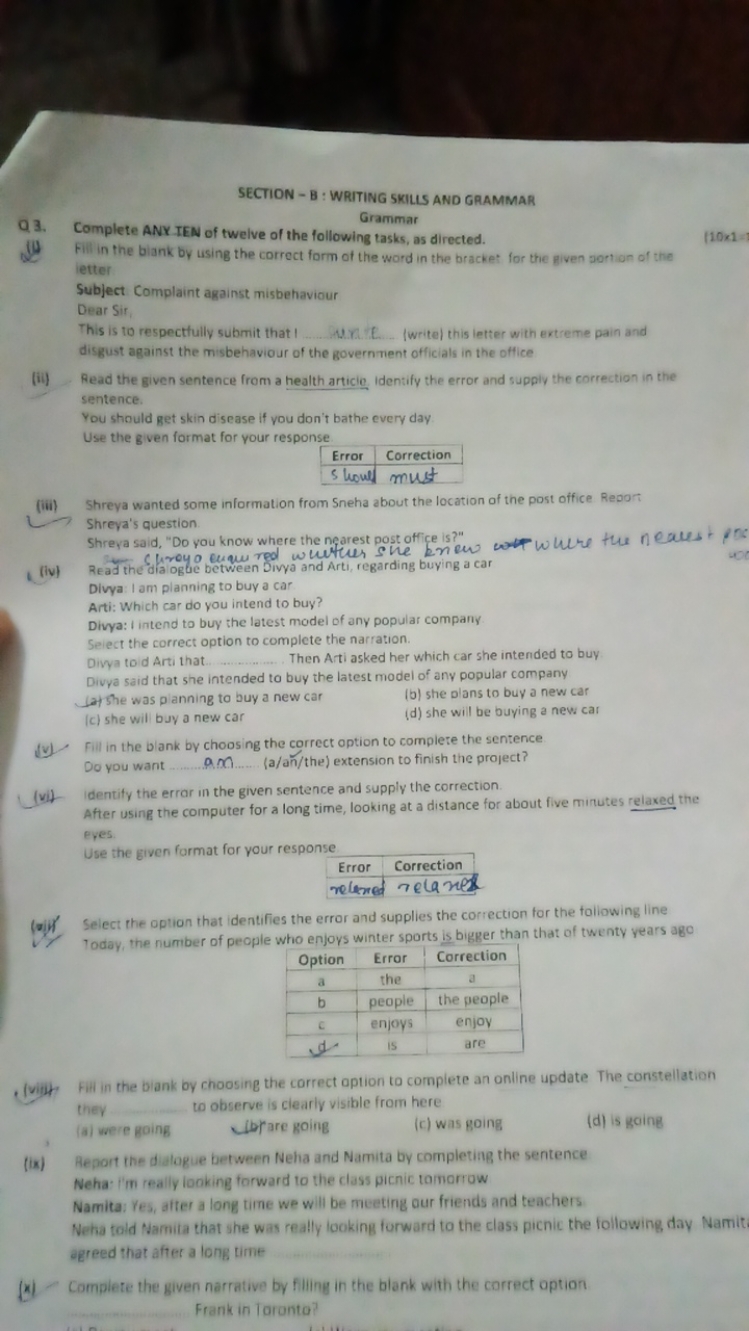 SECTION – B : WRITING SKILLS AND GRAMMAR
Grammar
Q 3. Complete ANY TEN of twelve of the following tasks, as directed. (10x1
(i) Fill in the blank by using the correct form of the word in the bracket for the given portion of the
letter
Subject: Complaint against misbehaviour
Dear Sir,
This is to respectfully submit that I ........ (write) this letter with extreme pain and
disgust against the misbehaviour of the government officials in the office
(ii) Read the given sentence from a health article. Identify the error and supply the correction in the
sentence.
You should get skin disease if you don't bathe every day.
Use the given format for your response
Error Correction
Should must
(iii) Shreya wanted some information from Sneha about the location of the post office. Report
Shreya's question.
Shreya said, "Do you know where the nearest post office is?"
Shreya enquired whether she knew where the nearest
(iv) Read the dialogue between Divya and Arti, regarding buying a car
Divya: I am planning to buy a car
Arti: Which car do you intend to buy?
Divya: I intend to buy the latest model of any popular company
Select the correct option to complete the narration.
Divya told Arti that.................. Then Arti asked her which car she intended to buy.
Divya said that she intended to buy the latest model of any popular company
(a) she was planning to buy a new car (b) she plans to buy a new car
(c) she will buy a new car (d) she will be buying a new car
(v) Fill in the blank by choosing the correct option to complete the sentence.
Do you want .........an...... (a/an/the) extension to finish the project?
(vi) Identify the error in the given sentence and supply the correction.
After using the computer for a long time, looking at a distance for about five minutes relaxed the
eyes.
Use the given format for your response
Error Correction
relaxed relaxes
(vii) Select the option that identifies the error and supplies the correction for the following line
Today, the number of people who enjoys winter sports is bigger than that of twenty years ago
Option Error Correction
a the a
b people the people
c enjoys enjoy
d is are
(viii) Fill in the blank by choosing the correct option to complete an online update. The constellation
they ................ to observe is clearly visible from here
(a) were going (b) are going (c) was going (d) is going
(ix) Report the dialogue between Neha and Namita by completing the sentence.
Neha: I'm really looking forward to the class picnic tomorrow
Namita: Yes, after a long time we will be meeting our friends and teachers.
Neha told Namita that she was really looking forward to the class picnic the following day. Namita
agreed that after a long time ......................
(x) Complete the given narrative by filling in the blank with the correct option.
........................ Frank in Toronto?